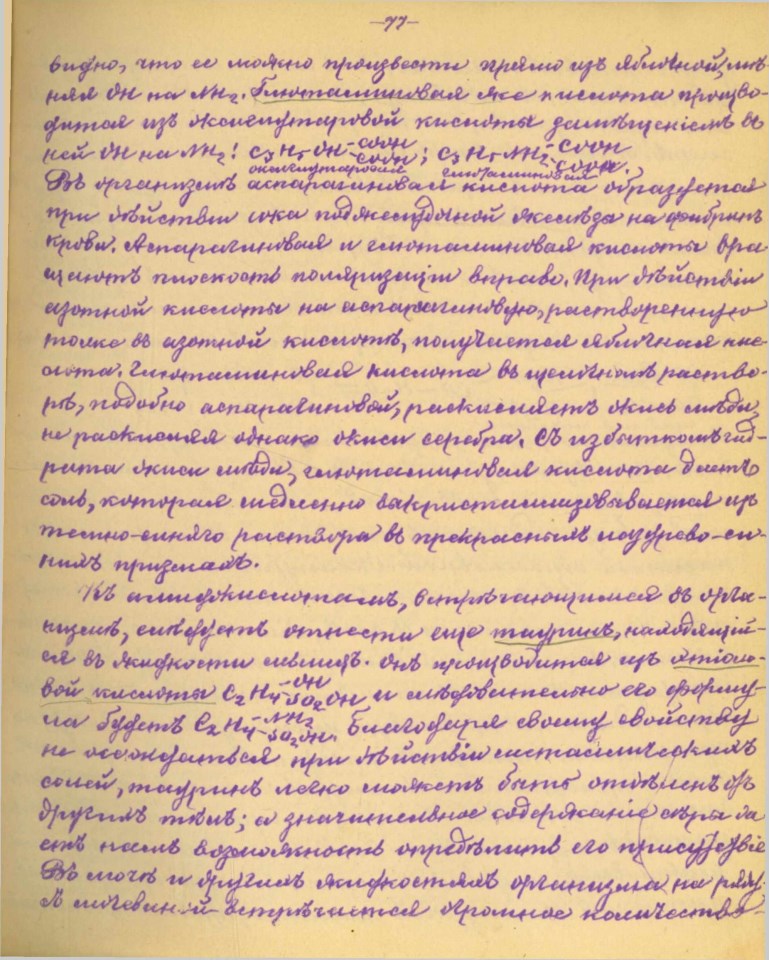 —77—
видно, что ее можно произвести прямо изъ яблочной, мѣ-
няя OH на NH₂. Глютаминовая же кислота произво-
дится изъ оксиглутаровой кислоты замѣщеніемъ въ
ней OH на NH₂: C₃H₅OH-COOH COOH; C₃H₅NH₂-COOH COOH.
оксиглутаровая глютаминовая
Въ организмѣ аспарагиновая кислота образуется
при дѣйствіи сока поджелудочной железы на фибринъ
крови. Аспарагиновая и глютаминовая кислоты вра-
щаютъ плоскость поляризаціи вправо. При дѣйствіи
азотной кислоты на аспарагиновую, растворенную
тоже въ азотной кислотѣ, получается яблочная кис-
лота. Глютаминовая кислота въ щелочномъ раство-
рѣ, подобно аспарагиновой, раскисляетъ окись мѣди,
не раскисляя однако окиси серебра. Съ избыткомъ гид-
рата окиси мѣди, глютаминовая кислота даетъ
соль, которая медленно выкристаллизовывается изъ
темно-синяго раствора въ прекрасныхъ лазурево-си-
нихъ призмахъ.
Къ амидокислотамъ, встрѣчающимся въ орга-
низмѣ, слѣдуетъ отнести еще тауринъ, находящій-
ся въ жидкости мышцъ. Онъ производится изъ этіоно-
вой кислоты C₂H₄-OH -SO₂OH и слѣдовательно его форму-
ла будетъ C₂H₄-NH₂ -SO₂OH. Благодаря своему свойству
не осаждаться при дѣйствіи металлическихъ
солей, тауринъ легко можетъ быть отдѣленъ отъ
другихъ тѣлъ; а значительное содержаніе сѣры да-
етъ намъ возможность опредѣлить его присутствіе
Въ мочѣ и другихъ жидкостяхъ организма на ряду
съ мочевиной встрѣчается огромное количество